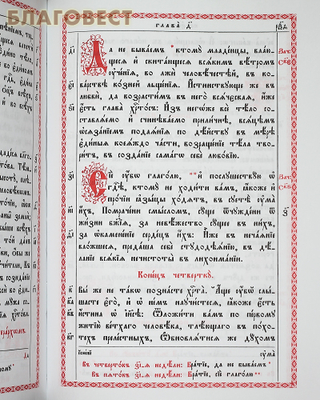 БЛАГОВЕСТ
глава̀ д҃
Да не бываемъ ктомꙋ̀ младенцы, влаю-
щесѧ и҆ скитающесѧ всѧкимъ вѣтромъ
ᲂу҆ченїѧ, во лжѝ человѣчестѣй, въ ко-
варствѣ козней льщенїѧ. И҆стинствꙋюще же въ
любвѝ, да возрастимъ въ него всѧческаѧ, и҆же
є҆сть глава̀ хрⷭ҇тосъ. И҆з̾ негѡже всѐ тѣло со-
ставлѧемо и҆ счиневаемо приличнѣ, всѧцѣмъ
ѡ҆сѧзанїемъ подаѧнїѧ по дѣйствꙋ въ мѣрѣ
є҆диныѧ коеѧждо части, возращенїе тѣла тво-
ритъ, въ созданїе самагѡ себѐ любовїю.
Сїѐ ᲂу҆бо глаголю, и҆ послꙋшествꙋю ѡ҆
гдⷭ҇ѣ, ктомꙋ̀ не ходити вамъ, ꙗ҆коже и҆
прочїи ꙗ҆зыцы ходѧтъ, въ сꙋетѣ ᲂу҆ма̀
и҆хъ, Помрачени смысломъ, сꙋще ѿчꙋждени ѿ
жизни бж҃їѧ, за невѣжество сꙋщее въ нихъ,
за ѡ҆камененїе сердецъ и҆хъ. И҆же въ нечаѧнїе
вложшесѧ, предаша себѐ стꙋдодѣѧнїю, въ дѣ-
ланїе всѧкїѧ нечистоты въ лихоиманїи.
Конецъ четверткꙋ̀.
Вы же не такѡ познасте хрⷭ҇та̀. Аще ᲂу҆бо слы-
шасте є҆го̀, и҆ ѡ҆ немъ наꙋчистесѧ, ꙗ҆коже є҆сть
и҆стина ѡ҆ і҆исѣ. Ѿложити вамъ по первомꙋ
житїю ветхаго человѣка, тлѣющаго въ похо-
техъ прелестныхъ, Ѡ҆бновлѧтисѧ же дꙋхомъ
ᲂу҆ма̀
въ четвертокъ недѣли: Братїе, да не бываемъ
въ пѧтокъ недѣли: Братїе, сїѐ глаголю